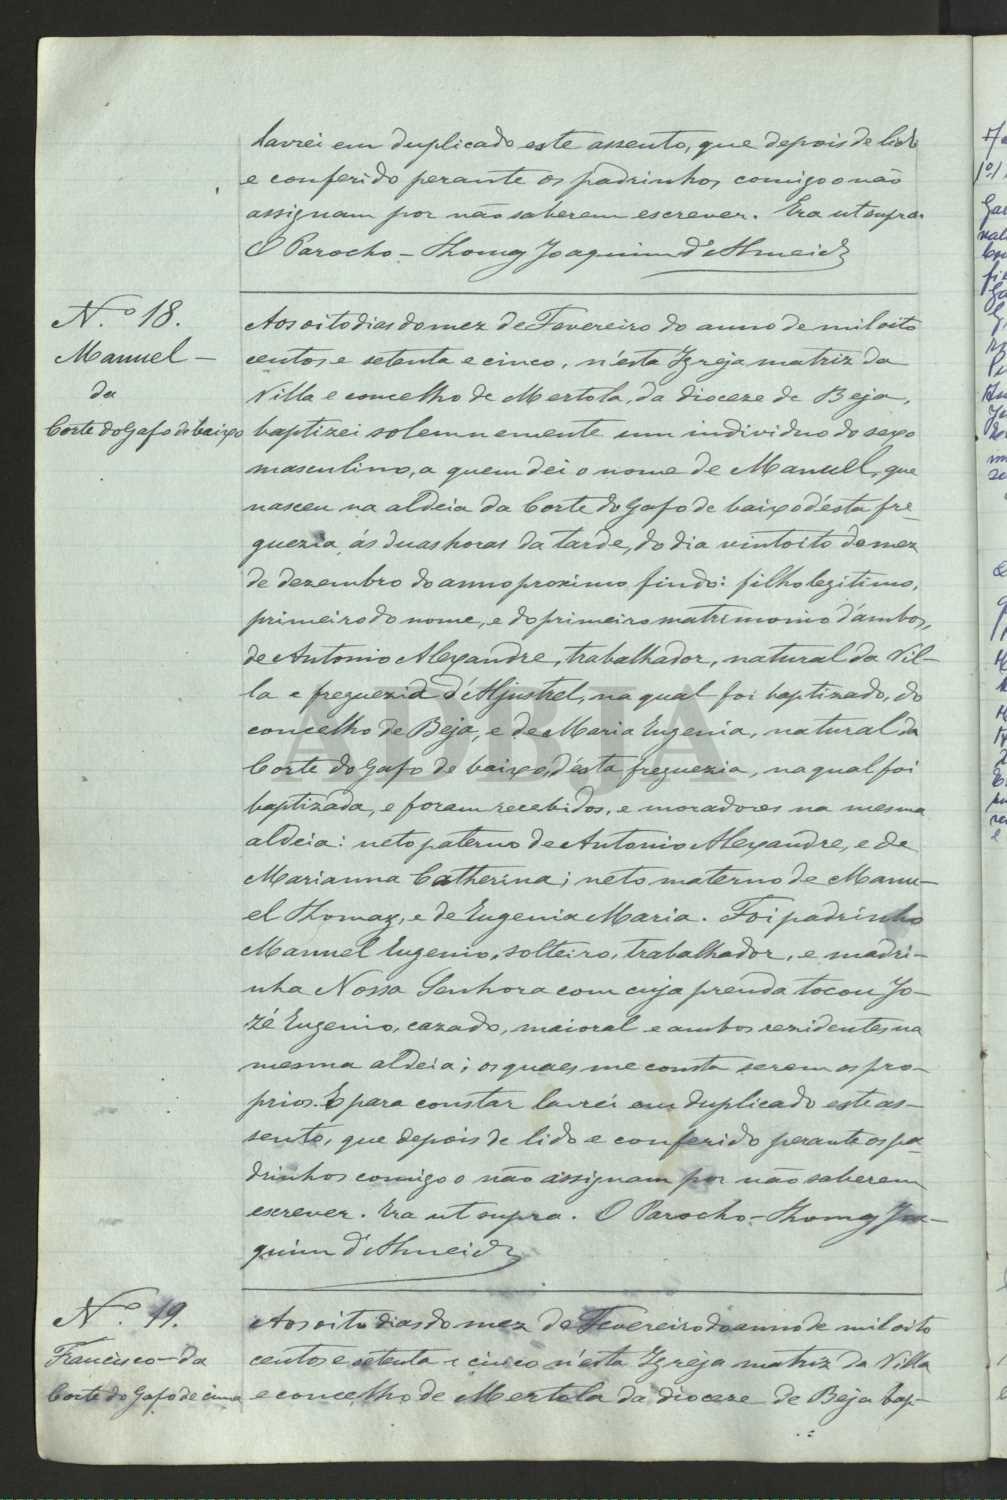 lavrei em duplicado este assento, que depois de lido
e conferido perante os padrinhos comigo o não
assignam por não saberem escrever. Era ut supra.
O Parocho - Thomaz Joaquim d'Almeida
N.º 18.
Manuel -
da
Corte do Gafo de baixo
Aos oito dias do mez de Fevereiro do anno de mil oito
centos e setenta e cinco, n'esta Igreja matriz da
Villa e concelho de Mertola, da diocese de Beja,
baptizei solemnemente um individuo do sexo
masculino, a quem dei o nome de Manuel, que
nasceu na aldeia da Corte do Gafo de baixo d'ésta fre-
guezia ás duas horas da tarde, do dia vintoito do mez
de dezembro do anno proximo findo: filho legitimo,
primeiro do nome, e do primeiro matrimonio d'ambos,
de Antonio Alexandre, trabalhador, natural da Vil-
la e freguezia d'Aljustrel, na qual foi baptizado, do
concelho de Beja, e de Maria Eugenia, natural da
Corte do Gafo de baixo, d'ésta freguezia, na qual foi
baptizada, e foram recebidos, e moradores na mesma
aldeia: neto paterno de Antonio Alexandre, e de
Marianna Catherina; neto materno de Manu-
el Thomaz, e de Eugenia Maria. Foi padrinho
Manuel Eugenio, solteiro, trabalhador, e madri-
nha Nossa Senhora com cuja prenda tocou Jo-
zé Eugenio, cazado, maioral e ambos rezidentes na
mesma aldeia; os quaes me consta serem os pro-
prios. E para constar lavrei em duplicado este as-
sento, que depois de lido e conferido perante os pa-
drinhos comigo o não assignam por não saberem
escrever. Era ut supra. O Parocho - Thomaz Joa-
quim d'Almeida
N.º 19.
Francisco - da
Corte do Gafo de cima
Aos oito dias do mez de Fevereiro do anno de mil oito
centos e setenta e cinco n'esta Igreja matriz da Villa
e concelho de Mertola da diocese de Beja bap-
ADBJA